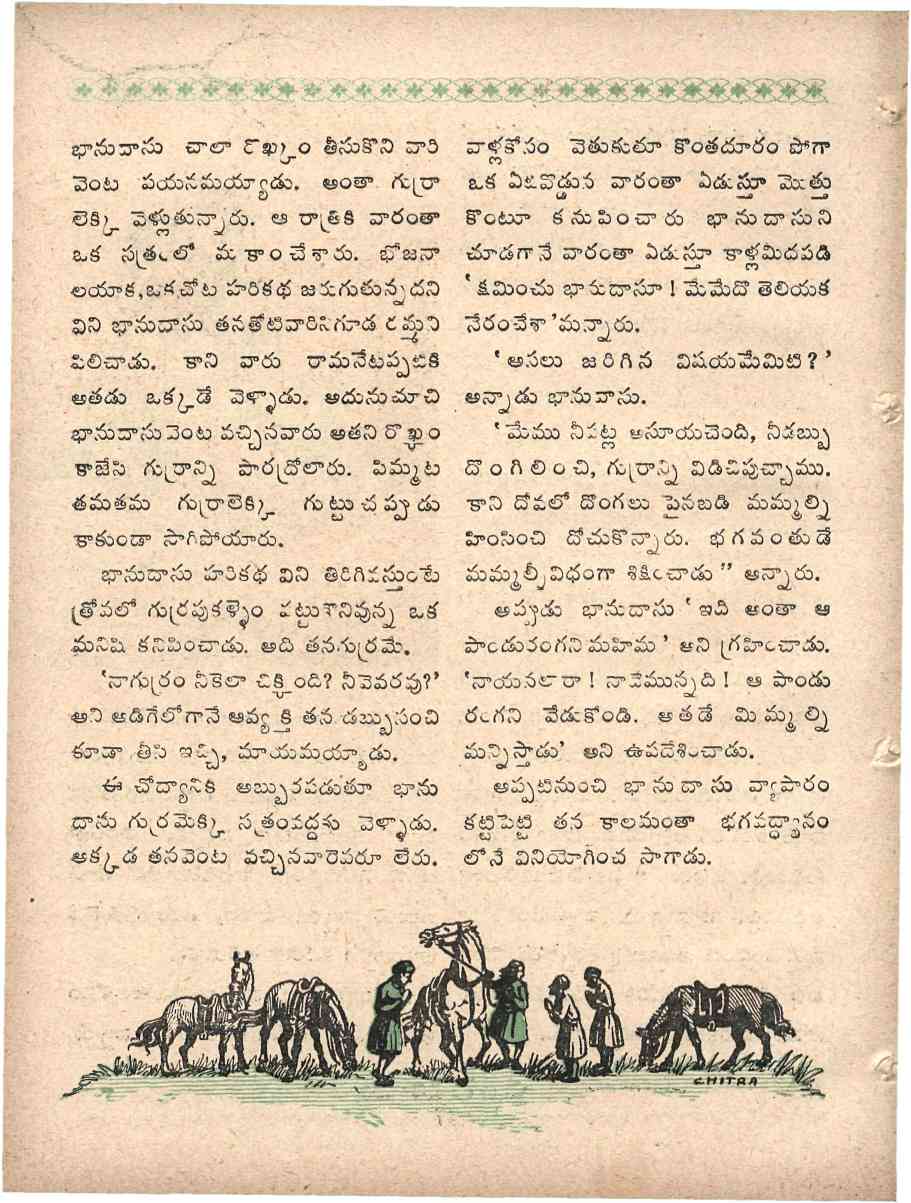 భానుదాసు చాలా రొఖ్కం తీసుకొని వారి
వెంట పయనమయ్యాడు. అంతా గుర్రా
లెక్కి వెళ్లుతున్నారు. ఆ రాత్రికి వారంతా
ఒక సత్రంలో మకాంచేశారు. భోజనా
లయాక, ఒకచోట హరికథ జరుగుతున్నదని
విని భానుదాసు తనతోటివారినిగూడ రమ్మని
పిలిచాడు. కాని వారు రామనేటప్పటికి
అతడు ఒక్కడే వెళ్ళాడు. అదునుచూచి
భానుదాసువెంట వచ్చినవారు అతని రొఖ్ఖం
కాజేసి గుర్రాన్ని పారద్రోలారు. పిమ్మట
తమతమ గుర్రాలెక్కి గుట్టుచప్పుడు
కాకుండా సాగిపోయారు.
భానుదాసు హరికథ విని తిరిగివస్తుంటే
త్రోవలో గుర్రపుకళ్ళెం పట్టుకొనివున్న ఒక
మనిషి కనిపించాడు. అది తనగుర్రమే.
'నాగుర్రం నీకెలా చిక్కింది? నీవెవరవు?'
అని అడిగేలోగానే ఆవ్యక్తి తన డబ్బుసంచి
కూడా తీసి ఇచ్చి, మాయమయ్యాడు.
ఈ చోద్యానికి అబ్బురపడుతూ భాను
దాసు గుర్రమెక్కి సత్రంవద్దకు వెళ్ళాడు.
అక్కడ తనవెంట వచ్చినవారెవరూ లేరు.
వాళ్లకోసం వెతుకుతూ కొంతదూరం పోగా
ఒక ఏటివొడ్డున వారంతా ఏడుస్తూ మొత్తు
కొంటూ కనుపించారు భానుదాసుని
చూడగానే వారంతా ఏడుస్తూ కాళ్లమీదపడి
'క్షమించు భానుదాసూ! మేమేదొ తెలియక
నేరంచేశా'మన్నారు.
'అసలు జరిగిన విషయమేమిటి?'
అన్నాడు భానుదాసు.
'మేము నీపట్ల అసూయచెంది, నీడబ్బు
దొంగిలించి, గుర్రాన్ని విడిచిపుచ్చాము.
కాని దోవలో దొంగలు పైనబడి మమ్మల్ని
హింసించి దోచుకొన్నారు. భగవంతుడే
మమ్మల్నీవిధంగా శిక్షించాడు" అన్నారు.
అప్పుడు భానుదాసు 'ఇది అంతా ఆ
పాండురంగని మహిమ' అని గ్రహించాడు.
'నాయనలారా! నాదేమున్నది! ఆ పాండు
రంగని వేడుకోండి. అతడే మిమ్మల్ని
మన్నిస్తాడు' అని ఉపదేశించాడు.
అప్పటినుంచి భానుదాసు వ్యాపారం
కట్టిపెట్టి తన కాలమంతా భగవద్ధ్యానం
లోనే వినియోగించ సాగాడు.
CHITRA